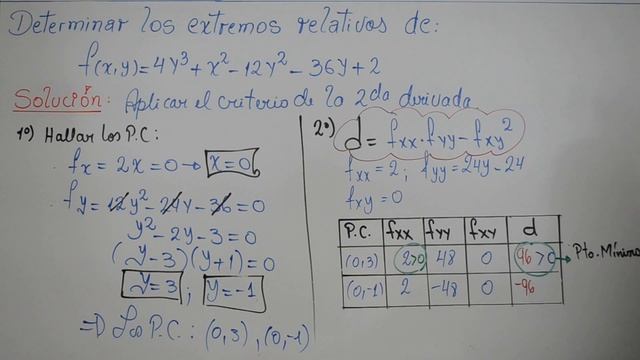 Determinar los extremos relativos de:
f(x,y)=4y³+x²-12y²-36y+2
Solución: Aplicar el criterio de la 2da derivada
1º) Hallar los P.C:
fx = 2x = 0 → x=0
fy = 12y²-24y-36=0
y²-2y-3=0
(y-3)(y+1)=0
y=3 ; y=-1
⇒ Los P.C.: (0,3), (0,-1)
2º) d = fxx·fyy-fxy²
fxx=2; fyy=24y-24
fxy=0
P.C. fxx fyy fxy d
(0,3) 2>0 48 0 96>0 → Pto.Mínimo
(0,-1) 2 -48 0 -96